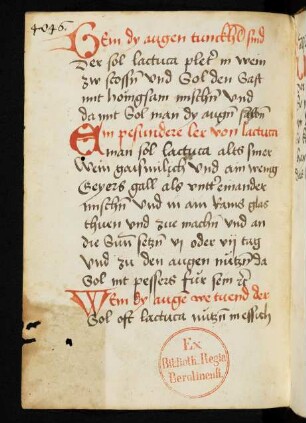 4046.
Wem dy augen tunckhel sind
Der sol lactuca pleter in wein
zw stossn vnd Sol den Saft
mit honigsam mischn vnd
da mit Sol man dy augn salbn
Ain pesundere ler von lactuca
man sol lactuca alts smer
Wein gaismilich vnd am wenig
Geyers gall als vnter einander
mischn vnd in am glas
thuen vnd zue machn vnd an
die Sun setzn vj oder vij tag
vnd zu den augen nutzn da
Sol nit pessers für sein
Wem dy auge we tuend der
Sol oft lactuca nutzn
Ex
Biblioth. Regia
Berolinensi.